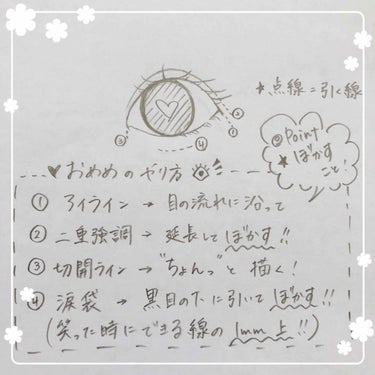 ★点線=引く線
③
④
②
①
◎Point
★ぼかす
こと!
♥おめめのやり方
① アイライン → 目の流れに沿って
② 二重強調 → 延長してぼかす!!
③ 切開ライン → "ちょんっ"と描く!
④ 涙袋 → 黒目の下に引いてぼかす!!
(笑った時にできる線の1mm上!!)